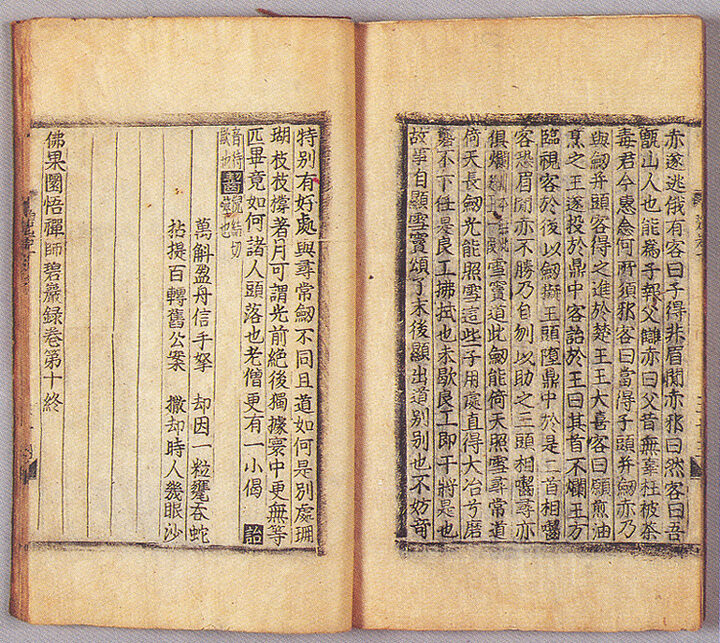 亦遂逃俄有客曰子得非眉閒亦邪曰然客曰吾
甑山人也能爲子報父讎亦曰父昔無辜枉被荼
毒君今惠念何所須邪客曰當得子頭并劒亦乃
與劒并頭客得之進於楚王王大喜客曰願煎油
烹之王遂投於鼎中客詒於王曰其首不爛王方
臨視客於後以劒擬王頭墮鼎中於是二首相齧
客恐眉閒亦不勝乃自刎以助之三頭相齧尋亦
俱爛雪竇道此劒能倚天照雪尋常道
倚天長劒光能照雪這些子用處直得大冶兮磨
礱不下任是良工拂拭也未歇良工即干將是也
故事自顯雪竇頌了末後顯出道别别也不妨奇
特别有好處與尋常劒不同且道如何是别處珊
瑚枝枝撑著月可謂光前絕後獨據寰中更無等
匹畢竟如何諸人頭落也老僧更有一小偈 詒
音待欺也 齧 倪結切噬也
萬斛盈舟信手拏 却因一粒甕吞蛇
拈提百轉舊公案 撒却時人幾眼沙
佛果圜悟禪師碧巖録卷第十終